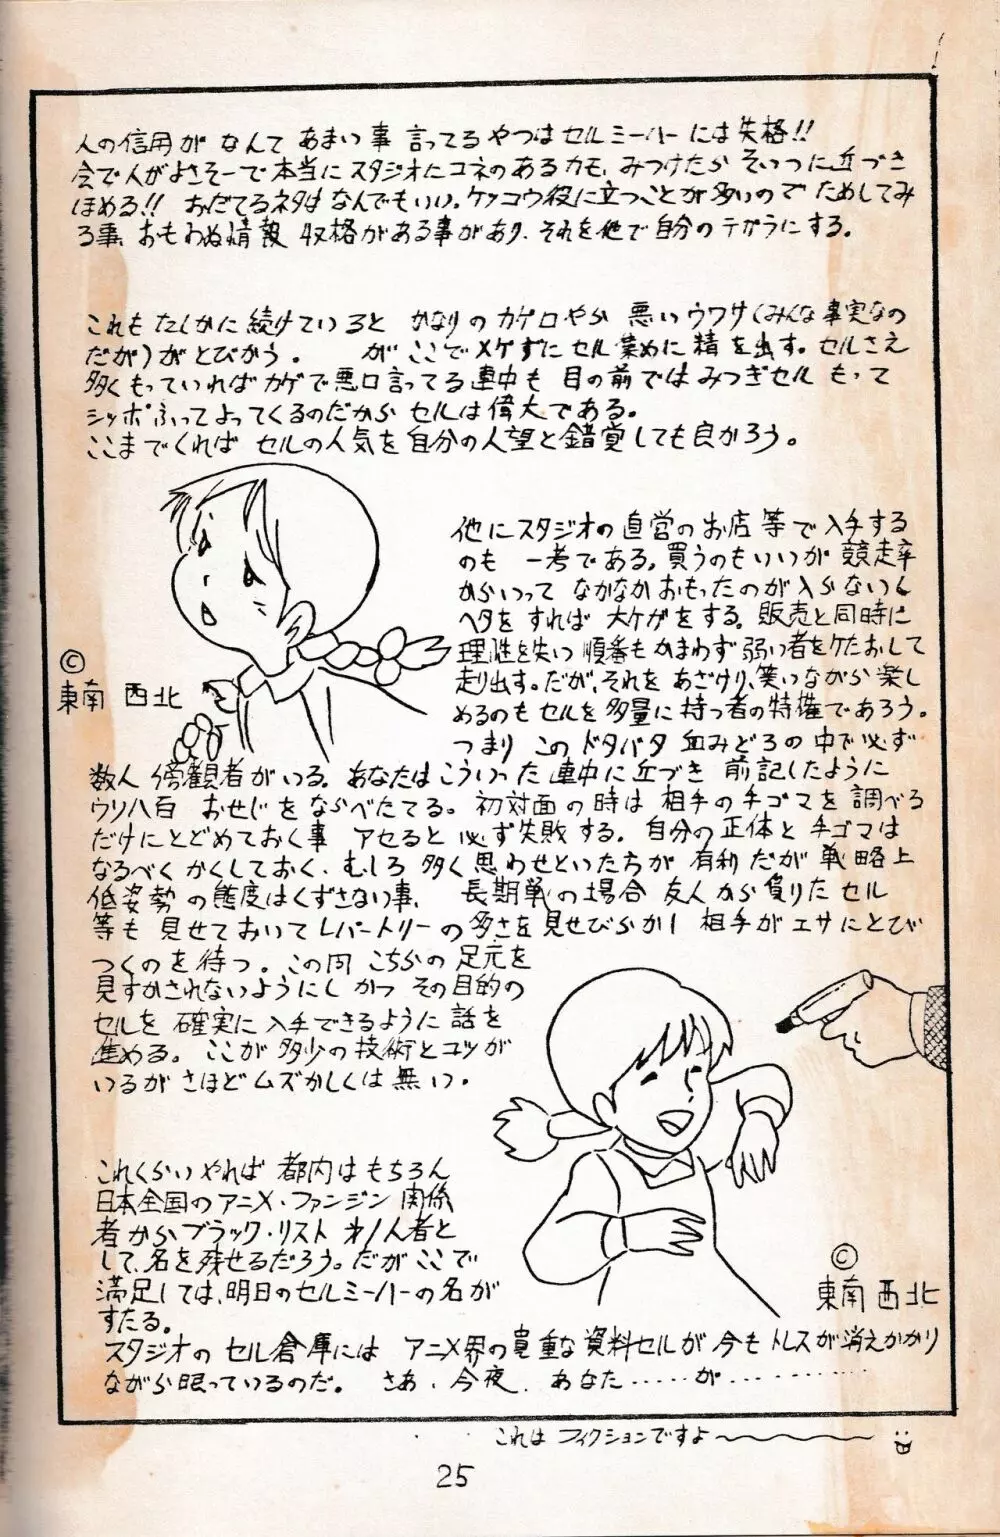 人の信用が なんて あまい事 言ってる やつは セルミーハーには 失格!!
会で人がよさそーで本当にスタジオにコネのあるカモ、みつけたら そいつに近づき
ほめる!! おだてるネタは なんでもいい。ケッコウ役に立つことが多いので ためしてみ
る事、おもわぬ情報 収格がある事があり、それを他で自分のテガラにする。
これも たしかに 続けていると かなりの カゲ口やら 悪いウワサ(みんな事実なの
だが)が とびかう。 が ここで メゲずに セル集めに 精を出す。セルさえ
多くもっていれば カゲで悪口言ってる連中も 目の前では みつぎセル もって
シッポふってよってくるのだから セルは偉大である。
ここまでくれば セルの人気を自分の人望と錯覚しても良かろう。
他にスタジオの直営のお店等で入手する
のも 一考である。買うのもいいが 競走率
からいって なかなかおもったのが入らないし
ヘタをすれば 大ケガをする。販売と同時に
理性を失い 順番もかまわず 弱い者をケたおして
走り出す。だが、それを あざけり、笑いながら 楽し
めるのも セルを多量に持つ者の特権であろう。
つまり この ドタバタ 血みどろの中で必ず
数人 傍観者がいる。あなたは こういった 連中に近づき 前記したように
ウソ八百 おせじを ならべたてる。初対面の時は 相手の手ゴマを調べる
だけにとどめておく事 アセると 必ず失敗する。自分の正体と 手ゴマは
なるべく かくしておく、むしろ 多く思わせといた方が 有利だが 戦略上
低姿勢の態度はくずさない事、 長期戦の場合 友人から 負りた セル
等も 見せておいて レパートリーの多さを見せびらかし 相手がエサにとびが
つくのを待つ。この間 こちらの 足元を
見すかされないようにし かつ その目的の
セルを 確実に入手できるように 話を
進める。ここが 多少の技術とコツが
いるが さほど ムズかしくは無い。
©
東南 西北
これくらい やれば 都内はもちろん
日本全国のアニメ・ファンジン関係
者から ブラック・リスト オ1人者と
して、名を残せるだろう。だが ここで
満足しては、明日のセルミーハーの名が
すたる。
スタジオの セル倉庫には アニメ界の貴重な資料セルが 今も トレスが消えかかり
ながら眠っているのだ。 さあ、今夜、あなた……が…………
©
東南 西北
これは フィクションですよ〜
25